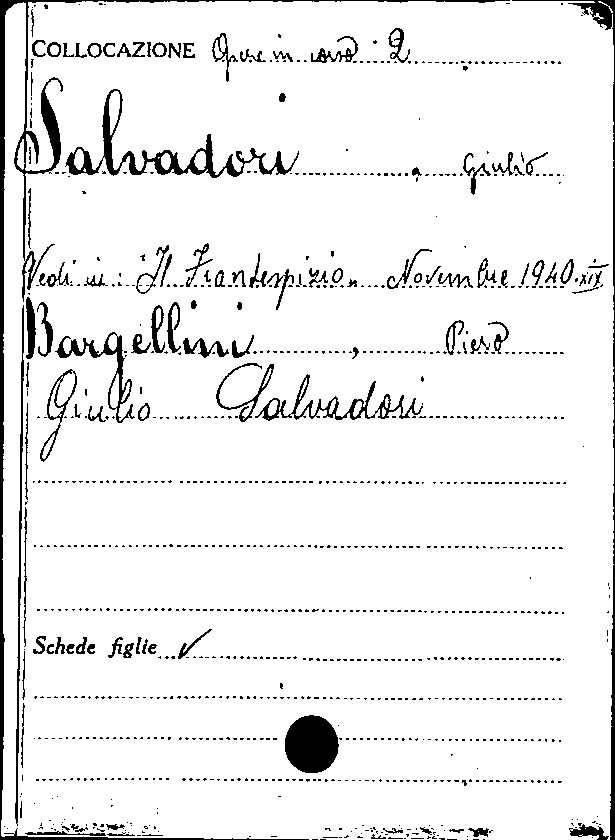 COLLOCAZIONE Opere in corso 2
Salvadori, Giulio
Vedi in: "Il Frontespizio" Novembre 1940.XIX
Bargellini, Piero
Giulio Salvadori
Schede figlie ✓